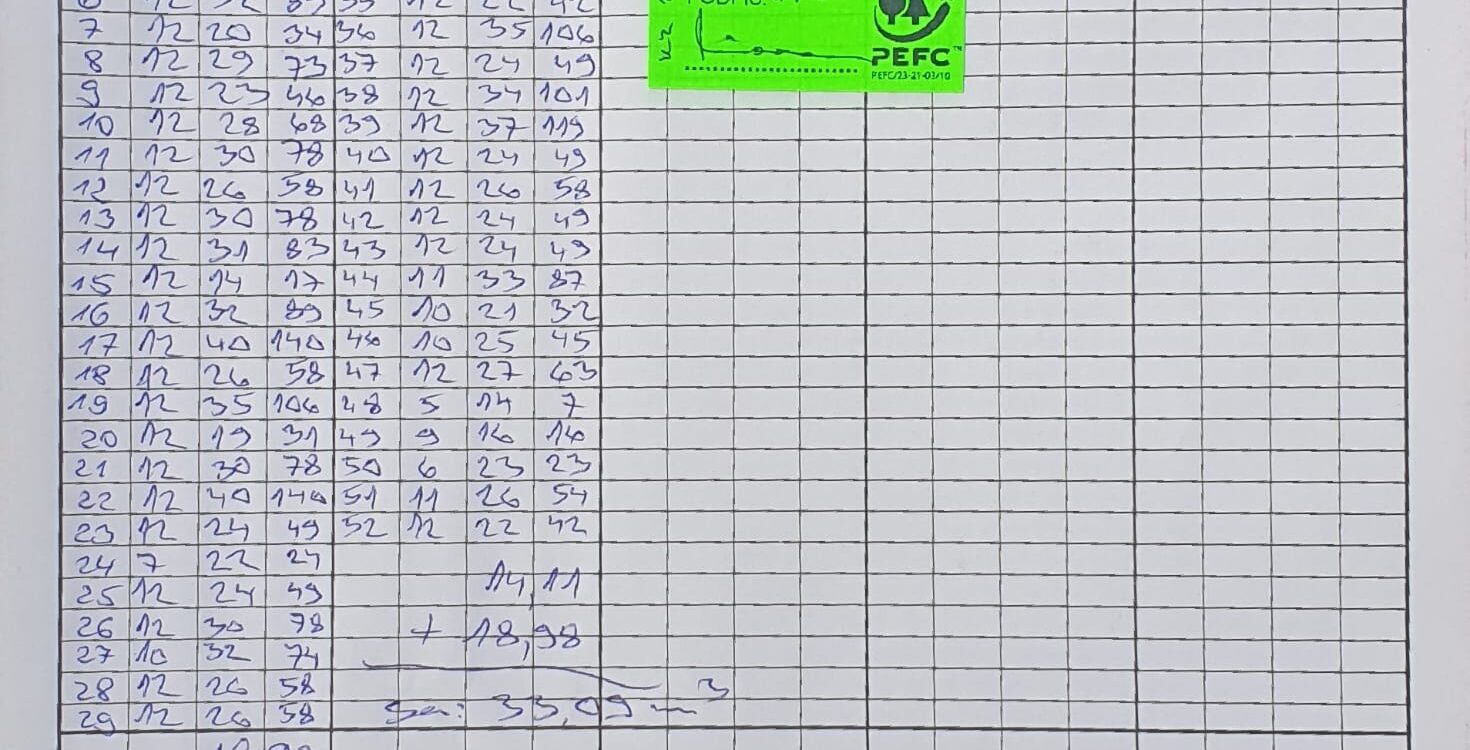 7 12 20 34 36 12 35 106
8 12 29 73 37 12 24 49
9 12 23 46 38 12 34 101
10 12 28 68 39 12 37 119
11 12 30 78 40 12 24 49
12 12 26 58 41 12 26 58
13 12 30 78 42 12 24 49
14 12 31 83 43 12 24 49
15 12 14 17 44 11 33 87
16 12 32 89 45 10 21 32
17 12 40 140 46 10 25 45
18 12 26 58 47 12 27 63
19 12 35 106 48 5 14 7
20 12 19 31 49 9 16 16
21 12 30 78 50 6 23 23
22 12 40 140 51 11 26 54
23 12 24 49 52 12 22 42
24 7 22 24
25 12 24 49
26 12 30 78
27 10 32 74
28 12 26 58
29 12 26 58
14,11
+ 18,98
Sa: 33,09 m³
PEFC™
PEFC/23-21-03/10